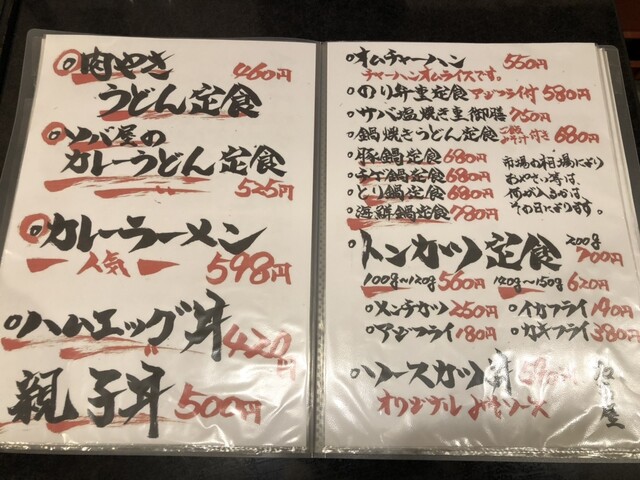 肉やき
うどん定食 460円
ソバ屋の
カレーうどん定食
525円
カレーラーメン
人気 598円
ハムエッグ丼 420円
親子丼 500円
オムチャーハン 550円
チャーハンオムライスです。
のり弁重定食 アジフライ付 580円
サバ塩焼き重御膳 750円
鍋焼きうどん定食 ご飯みそ汁付き 680円
豚鍋定食 680円
チゲ鍋定食 680円
とり鍋定食 680円
海鮮鍋定食 780円
市場の相場により
おやさい等は
何が入るかは
その日によります。
トンカツ定食 200g 700円
100g〜120g 560円 120g〜150g 620円
メンチカツ 250円 イカフライ 190円
アジフライ 180円 カキフライ 380円
ソースカツ丼 590円
オリジナル みそソース